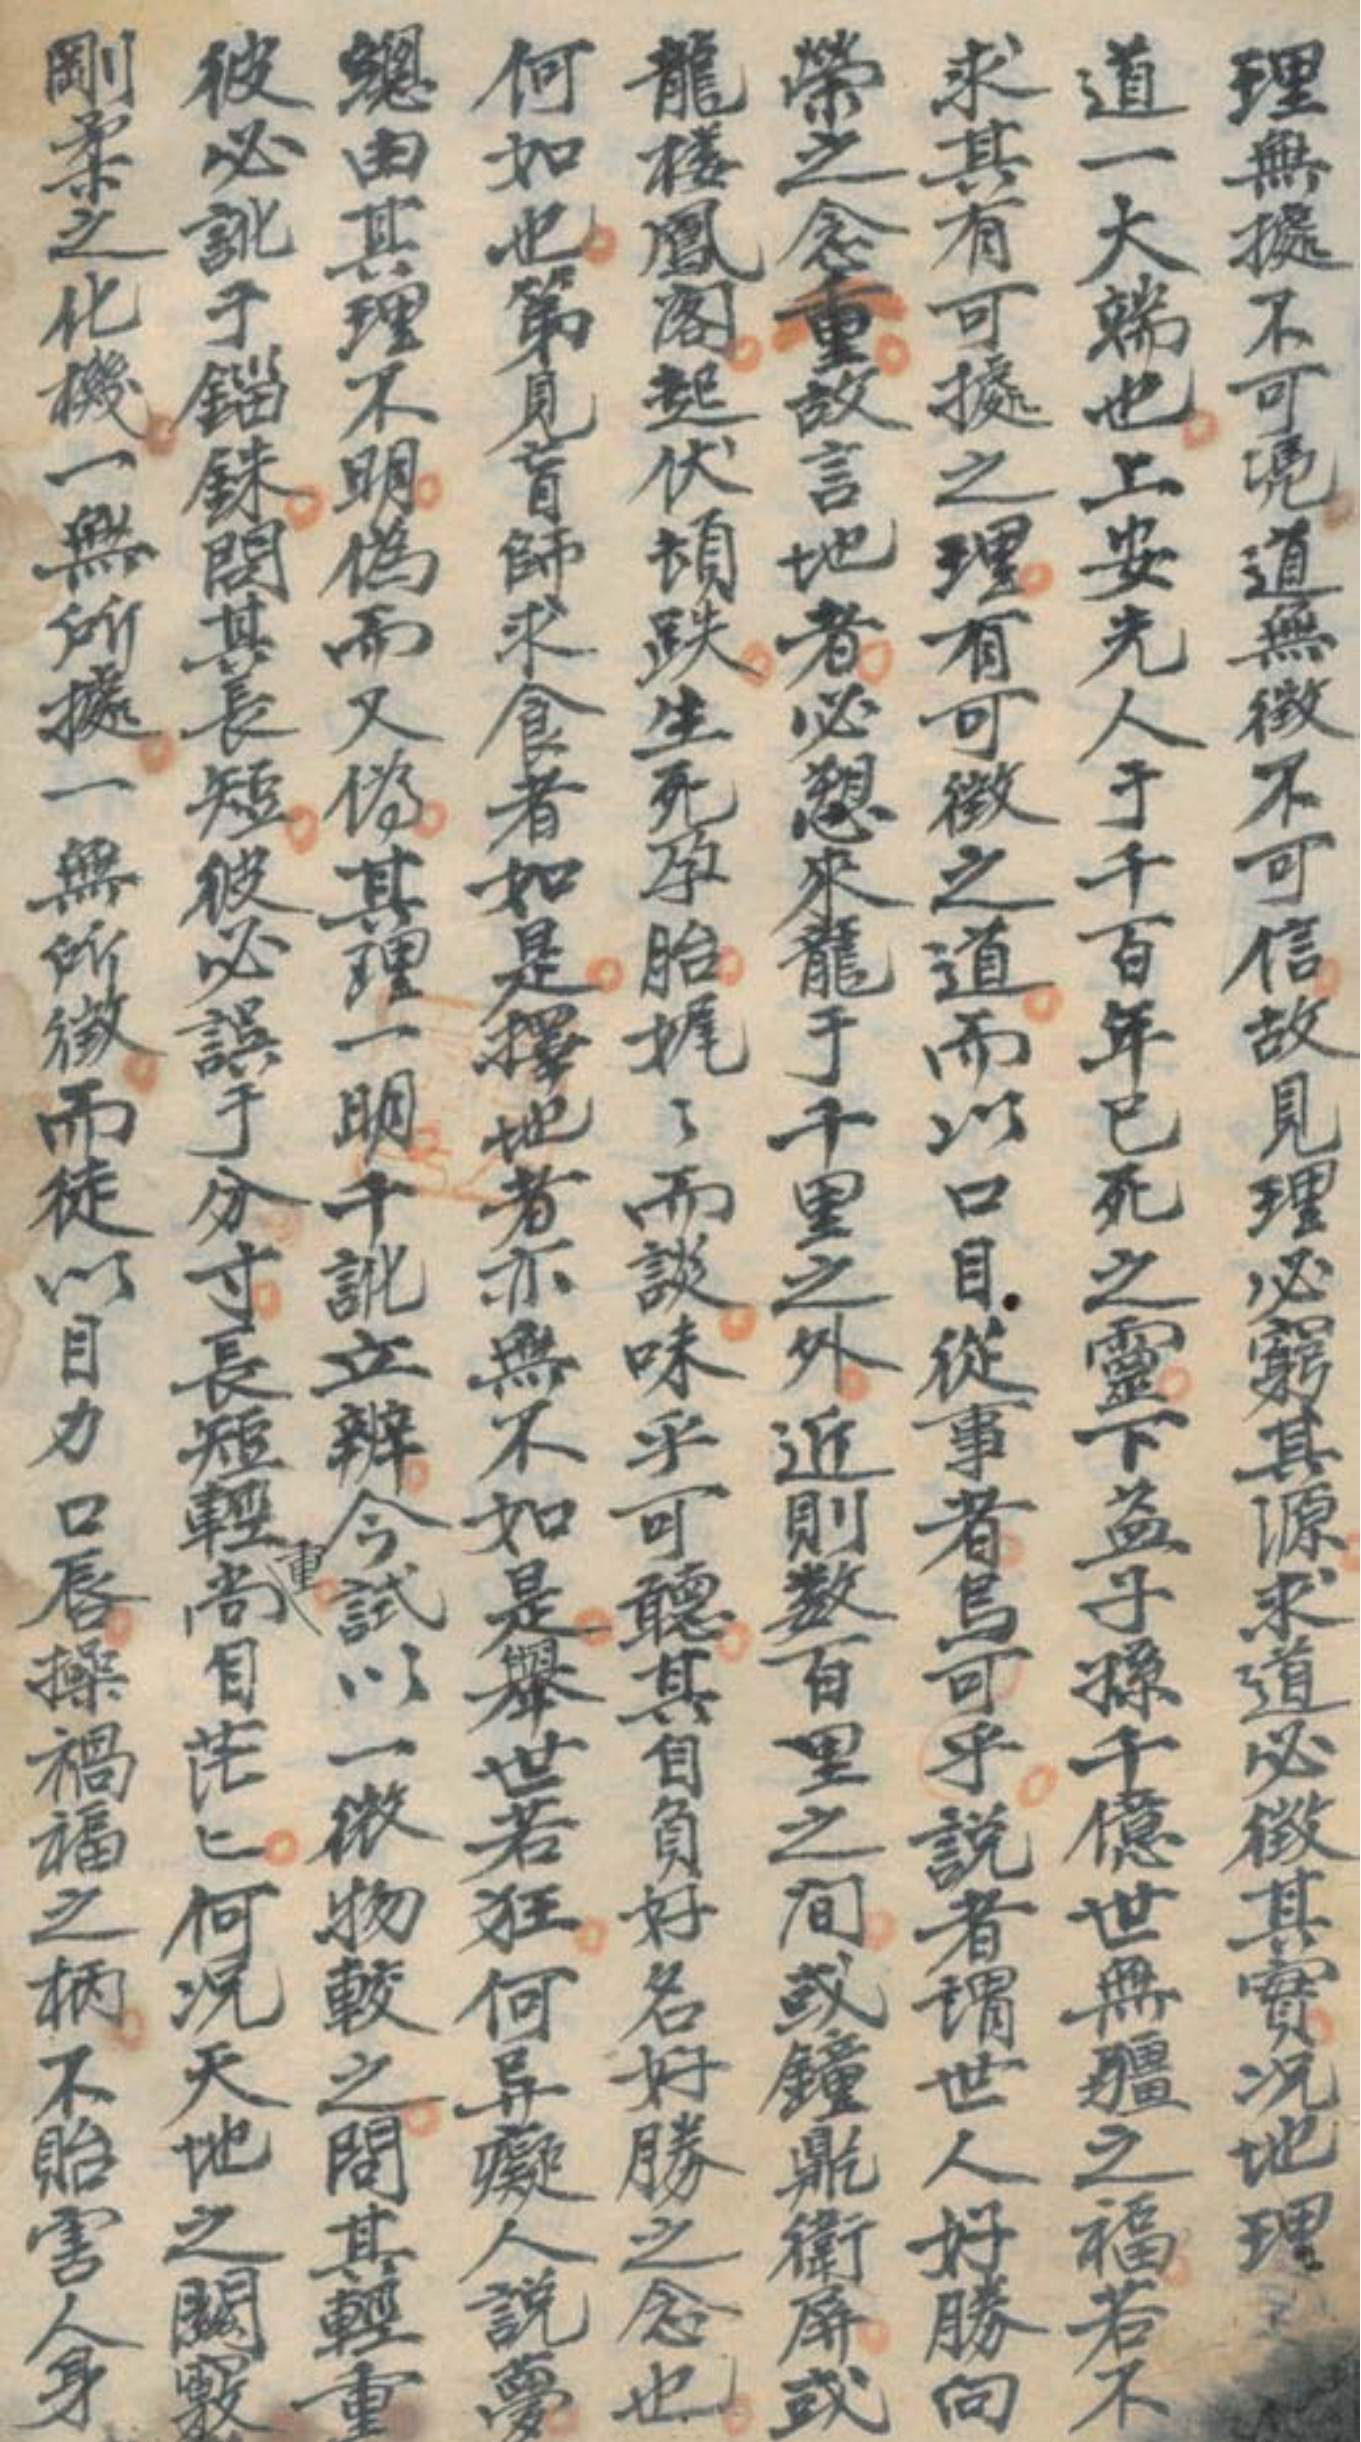 理無據不可凴道無徴不可信故見理必窮其源求道必徴其實况地理
道一大端也上安先人于千百年已死之靈下益子孫千億世無疆之福若不
求其有可據之理有可徴之道而以口目從事者烏可乎説者謂世人好勝向
榮之念重故言地者必愬來龍于千里之外近則数百里之间或鐘鼎衛屏或
龍楼鳳阁起伏頓跌生死孕胎娓〻而談味乎可聽其自負好名好勝之念也
何如也第見盲師求食者如是擇地者亦無不如是舉世若狂何异癡人説夢
總由其理不明偽而又偽其理一明千訛立辨今試以一微物較之問其輕重
彼必訛于錙銖問其長短彼必誤于分寸長短輕重尚目茫〻何况天地之闔竅
剛柔之化機一無所據一無所徴而徒以目力口唇操禍福之柄不貽害人身